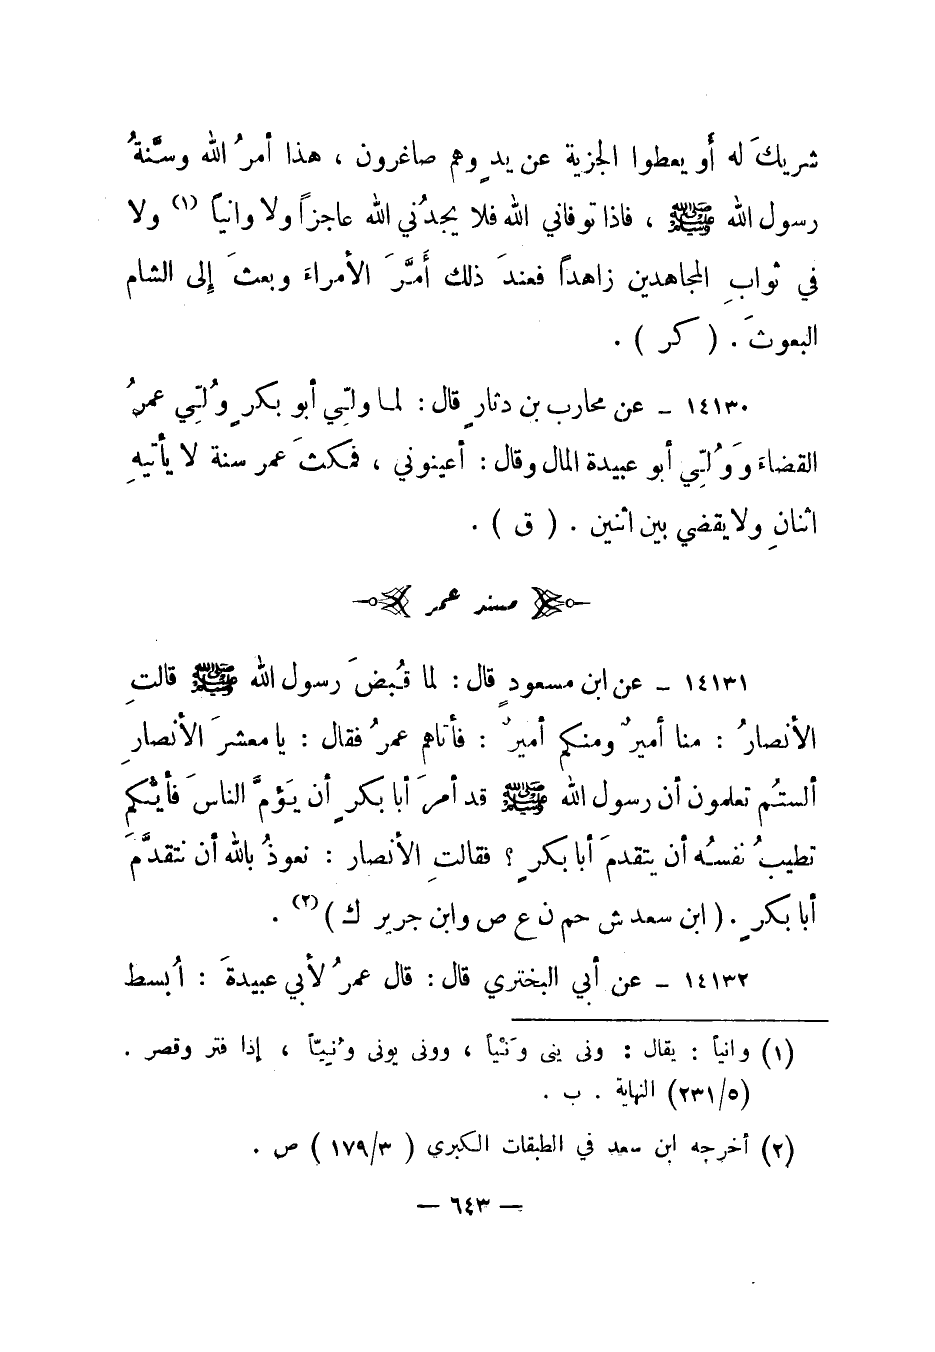 شريكَ له أَو يعطوا الجزية عن يدٍ وهم صاغرون ، هذا أمرُ الله وسنَّةُ
رسول الله ﷺ ، فاذا توفاني الله فلا يجدُني الله عاجزاً ولا وانياً (١) ولا
في ثوابِ المجاهدين زاهداً فعندَ ذلك أَمَّرَ الأمراءَ وبعثَ إلى الشام
البعوثَ . ( كر ) .
١٤١٣٠ - عن محارب بن دثارٍ قال : لما ولّي أبو بكرٍ وُلّي عمرُ
القضاءَ وَوُلّي أبو عبيدة المال وقال : أعينوني ، فمكثَ عمر سنة لا يأتيهِ
اثنانِ ولا يقضي بين اثنين . ( ق ) .
مسند عمر
١٤١٣١ - عن ابن مسعودٍ قال : لما قُبضَ رسول الله ﷺ قالتِ
الأنصارُ : منا أميرٌ ومنكم أميرٌ : فأتاهم عمرُ فقال : يا معشرَ الأنصارِ
ألستُم تعلمون أن رسول الله ﷺ قد أمرَ أبا بكرٍ أن يَؤمَّ الناسَ فأيُّكم
تطيبُ نفسُه أن يتقدمَ أبا بكرٍ ؟ فقالتِ الأنصار : نعوذُ بالله أن نتقدَّمَ
أبا بكرٍ . ( ابن سعد ش حم ن ع ص وابن جرير ك ) (٢) .
١٤١٣٢ - عن أبي البختري قال : قال عمرُ لأبي عبيدةَ : أُبسط
(١) وانياً : يقال : ونى يني وَنْياً ، وونى يونى وُنِيّاً ، إذا فتر وقصر .
(٢٣١/٥) النهاية . ب .
(٢) أخرجه ابن سعد في الطبقات الكبرى ( ١٧٩/٣ ) ص .
— ٦٤٣ —